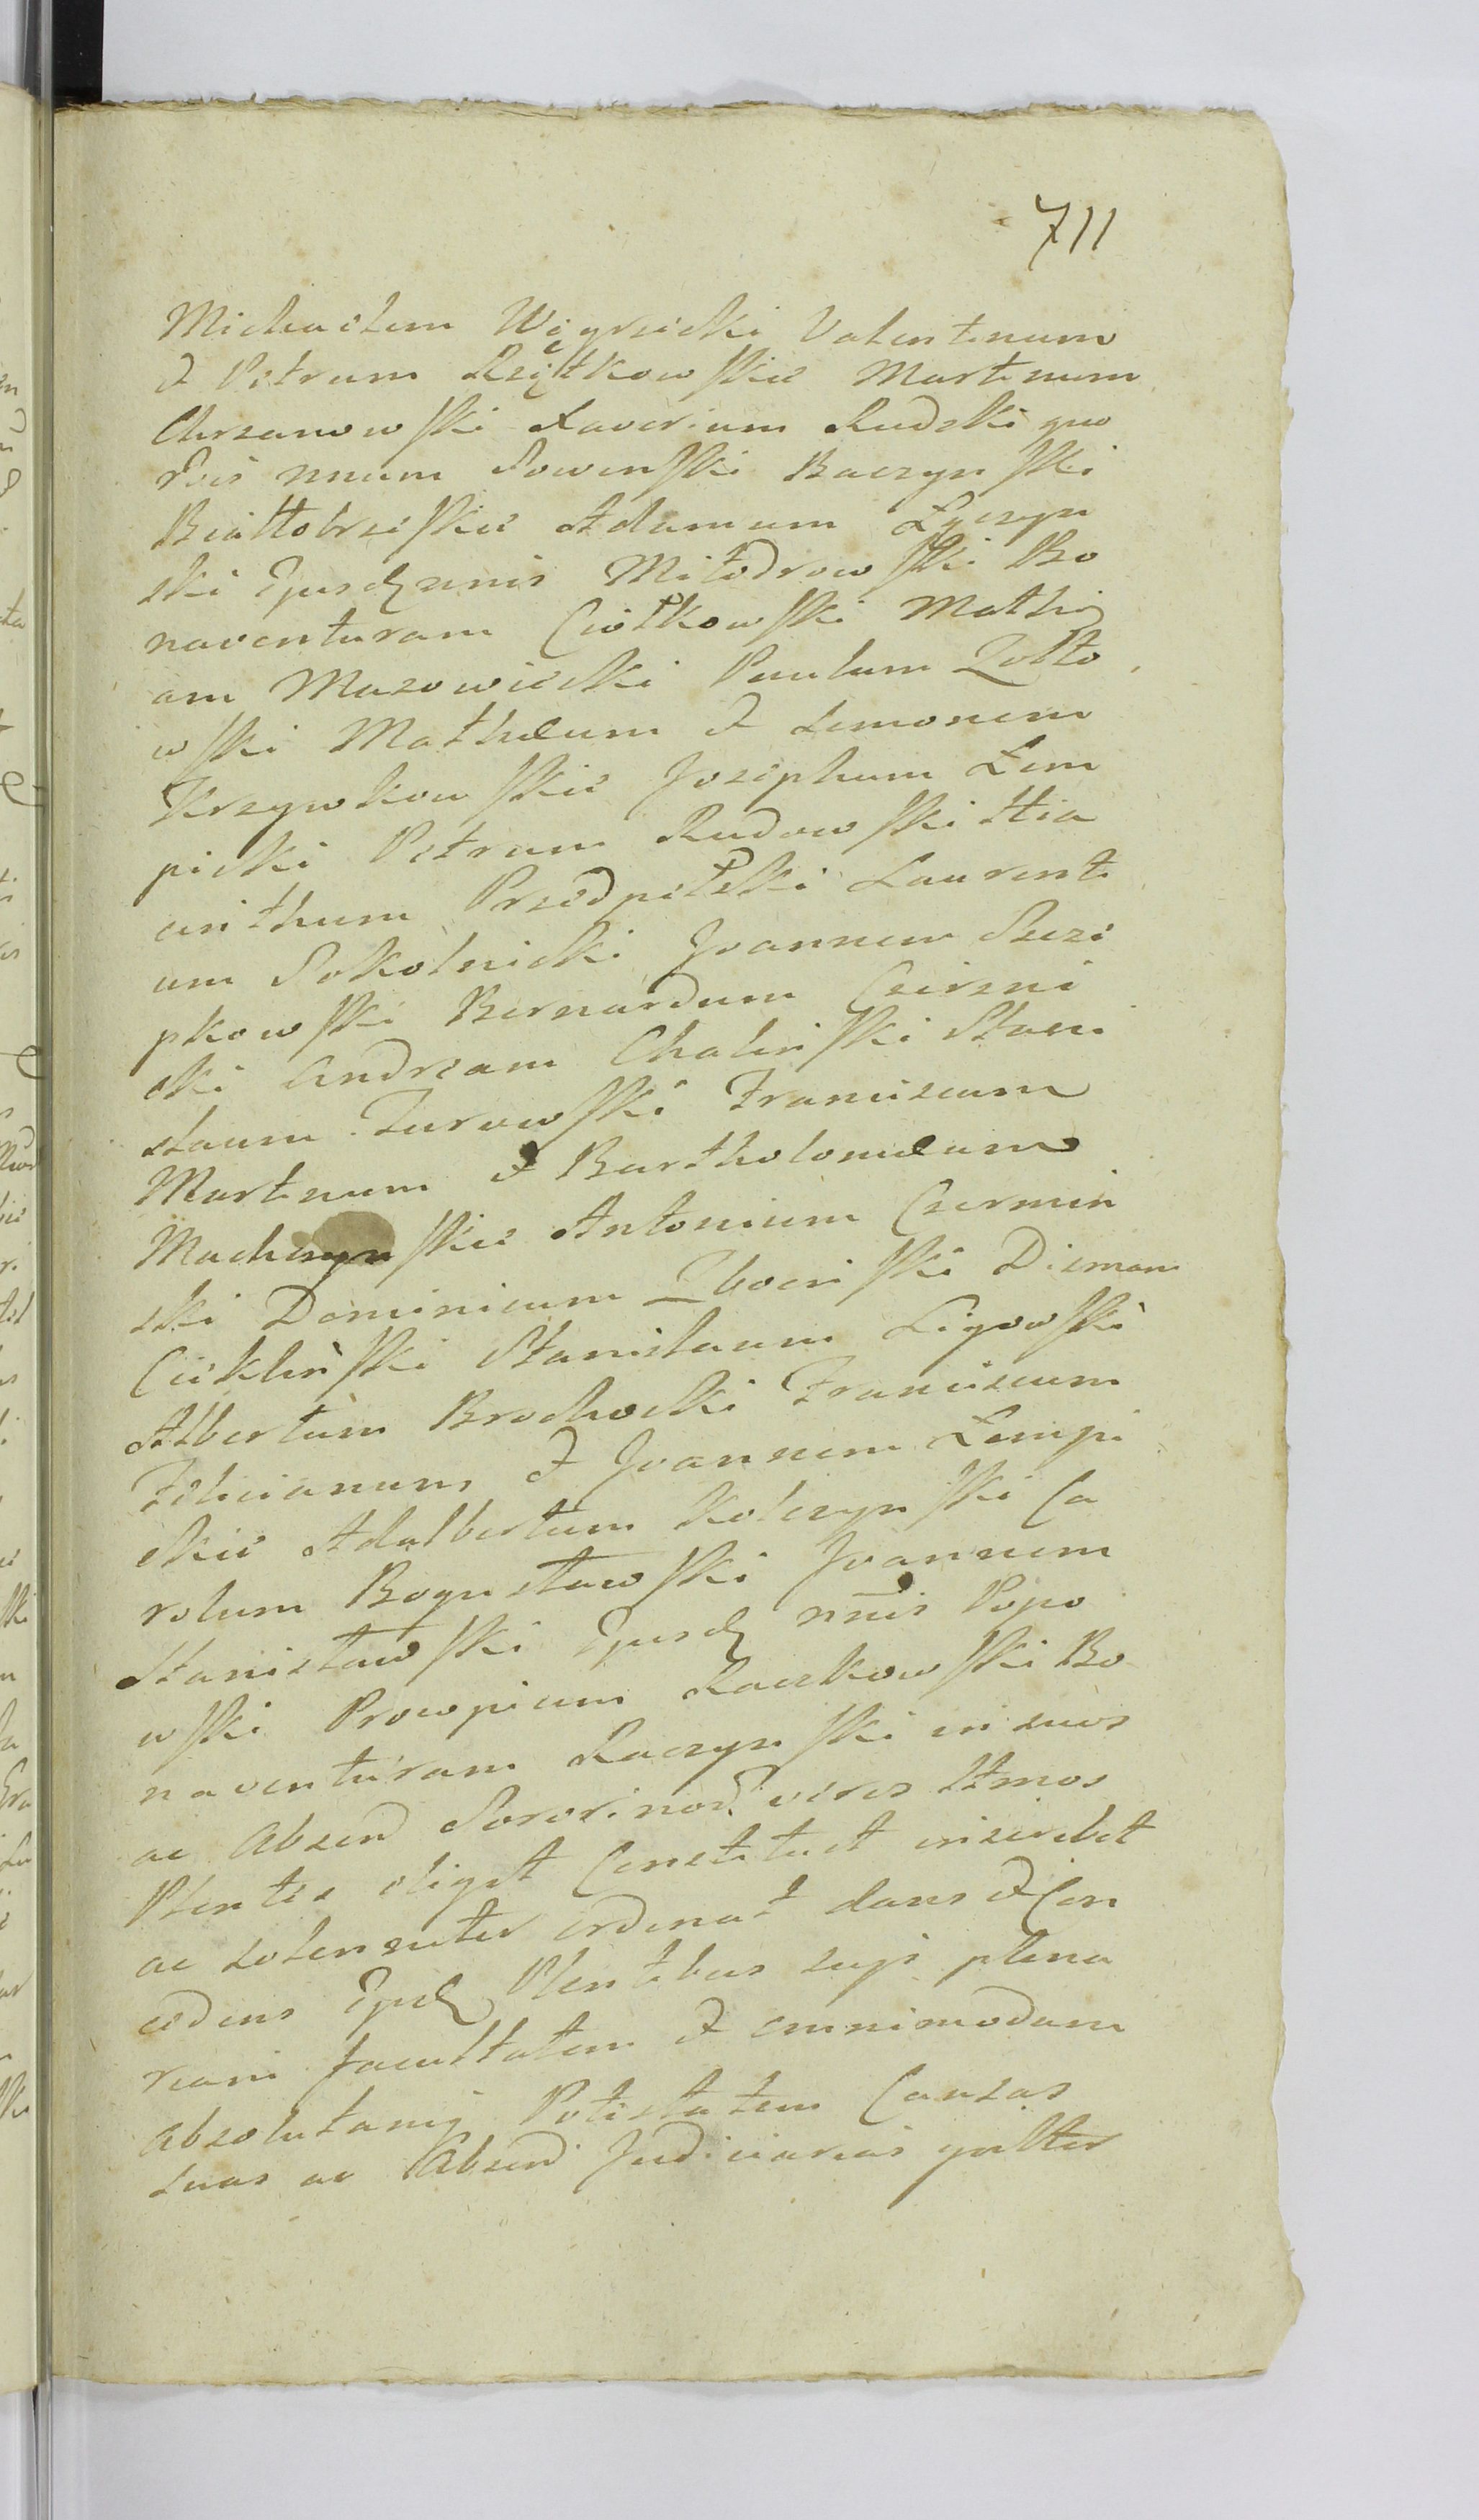 711
Michaelem Węgrzecki Valentinum
et Petrum Rzętkowskie Martinum
Chrzanowski Xaverium Rudzki quo
Sowinski Baczynski
Białłobrzeskie Adamum Łączyn
ski Ejusdq nnis Miłodrowski Bo
naventuram Ciołkowski Mathi
am Mazowiecki Paulum Zołto
wski Mathæum et Simonem
Krzywkowskie Josephum Łem
picki Petrum Rudowski Hia
cinthum Przedpełski Laurenti
um Sokolnicki Joannem Szczi
pkowski Bernardum Czirzni
cki Andream Chalinski Stani
slaum Turowski Franciscum
Martinum et Bartholomæum
Machczynskie Antonium Czermin
ski Dominicum Zboinski Dieman
Cieklinski Stanislaum Ligowski
Albertum Brochocki Franciscum
Felicianum et Joannem Łempi
ckie Adalbertum Kolczynski Ca
rolum Bogusławski Joannem
Stanisławski Ejusdq nnis Popo
wski Procopium Raczkowski Bo
naventuram Raczynski in suos
ac Absend Sororinor veros Ltmos
Plentes eligit Constituit inscribit
ac solenniter ordinat dans et Con
cedens Ipsdq Plentibus suis plena
riam facultatem et omnimodam
absolutamq Potestatem Causas
suas ac Absend Judiciarias gnlter